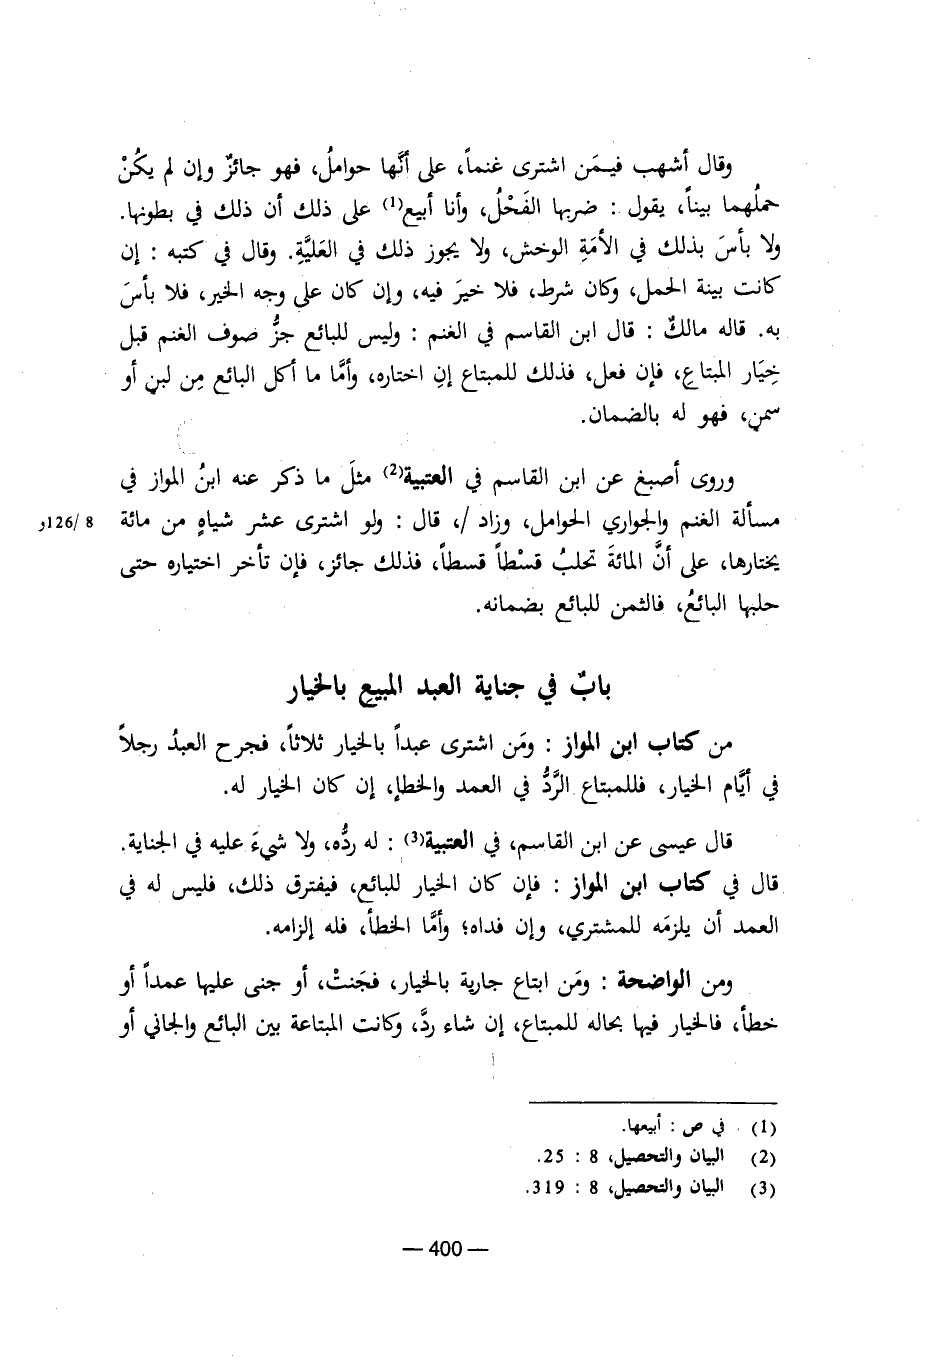 وقال أشهب فيمَن اشترى غنماً، على أنَّها حواملُ، فهو جائزٌ وإن لم يكُنْ
حملُهما بيناً، يقول : ضربها الفَحْلُ، وأنا أبيع(1) على ذلك أن ذلك في بطونها.
ولا بأسَ بذلك في الأمَةِ الوخش، ولا يجوز ذلك في العَليَّةِ. وقال في كتبه : إن
كانت بينة الحمل، وكان شرط، فلا خيرَ فيه، وإن كان على وجه الخير، فلا بأسَ
به. قاله مالكٌ : قال ابن القاسم في الغنم : وليس للبائع جزُّ صوف الغنم قبل
خِيَار المبتاعِ، فإن فعل، فذلك للمبتاع إنِ اختاره، وأمَّا ما أكل البائع مِن لبنٍ أو
سمنٍ، فهو له بالضمان.
وروى أصبغ عن ابن القاسم في العتبية(2) مثلَ ما ذكر عنه ابنُ المواز في
مسألة الغنم والجواري الحوامل، وزاد /، قال : ولو اشترى عشر شياهٍ من مائة
8 /126و
يختارها، على أنَّ المائةَ تحلبُ قسْطاً قسطاً، فذلك جائز، فإن تأخر اختياره حتى
حلبها البائعُ، فالثمن للبائع بضمانه.
بابٌ في جناية العبد المبيعِ بالخيار
من كتاب ابن المواز : ومَن اشترى عبداً بالخيار ثلاثاً، فجرح العبدُ رجلاً
في أيَّام الخيار، فللمبتاع الرَّدُّ في العمد والخطإ، إن كان الخيار له.
قال عيسى عن ابن القاسم، في العتبية(3) : له ردُّه، ولا شيءَ عليه في الجناية.
قال في كتاب ابن المواز : فإن كان الخيار للبائع، فيفترق ذلك، فليس له في
العمد أن يلزمَه للمشتري، وإن فداه؛ وأمَّا الخطأ، فله إلزامه.
ومن الواضحة : ومَن ابتاع جارية بالخيار، فجَنتْ، أو جنى عليها عمداً أو
خطأً، فالخيار فيها بحاله للمبتاع، إن شاء ردَّ، وكانت المبتاعة بين البائع والجاني أو
(1) في ص : أبيعها.
(2) البيان والتحصيل، 8 : 25.
(3) البيان والتحصيل، 8 : 319.
— 400 —